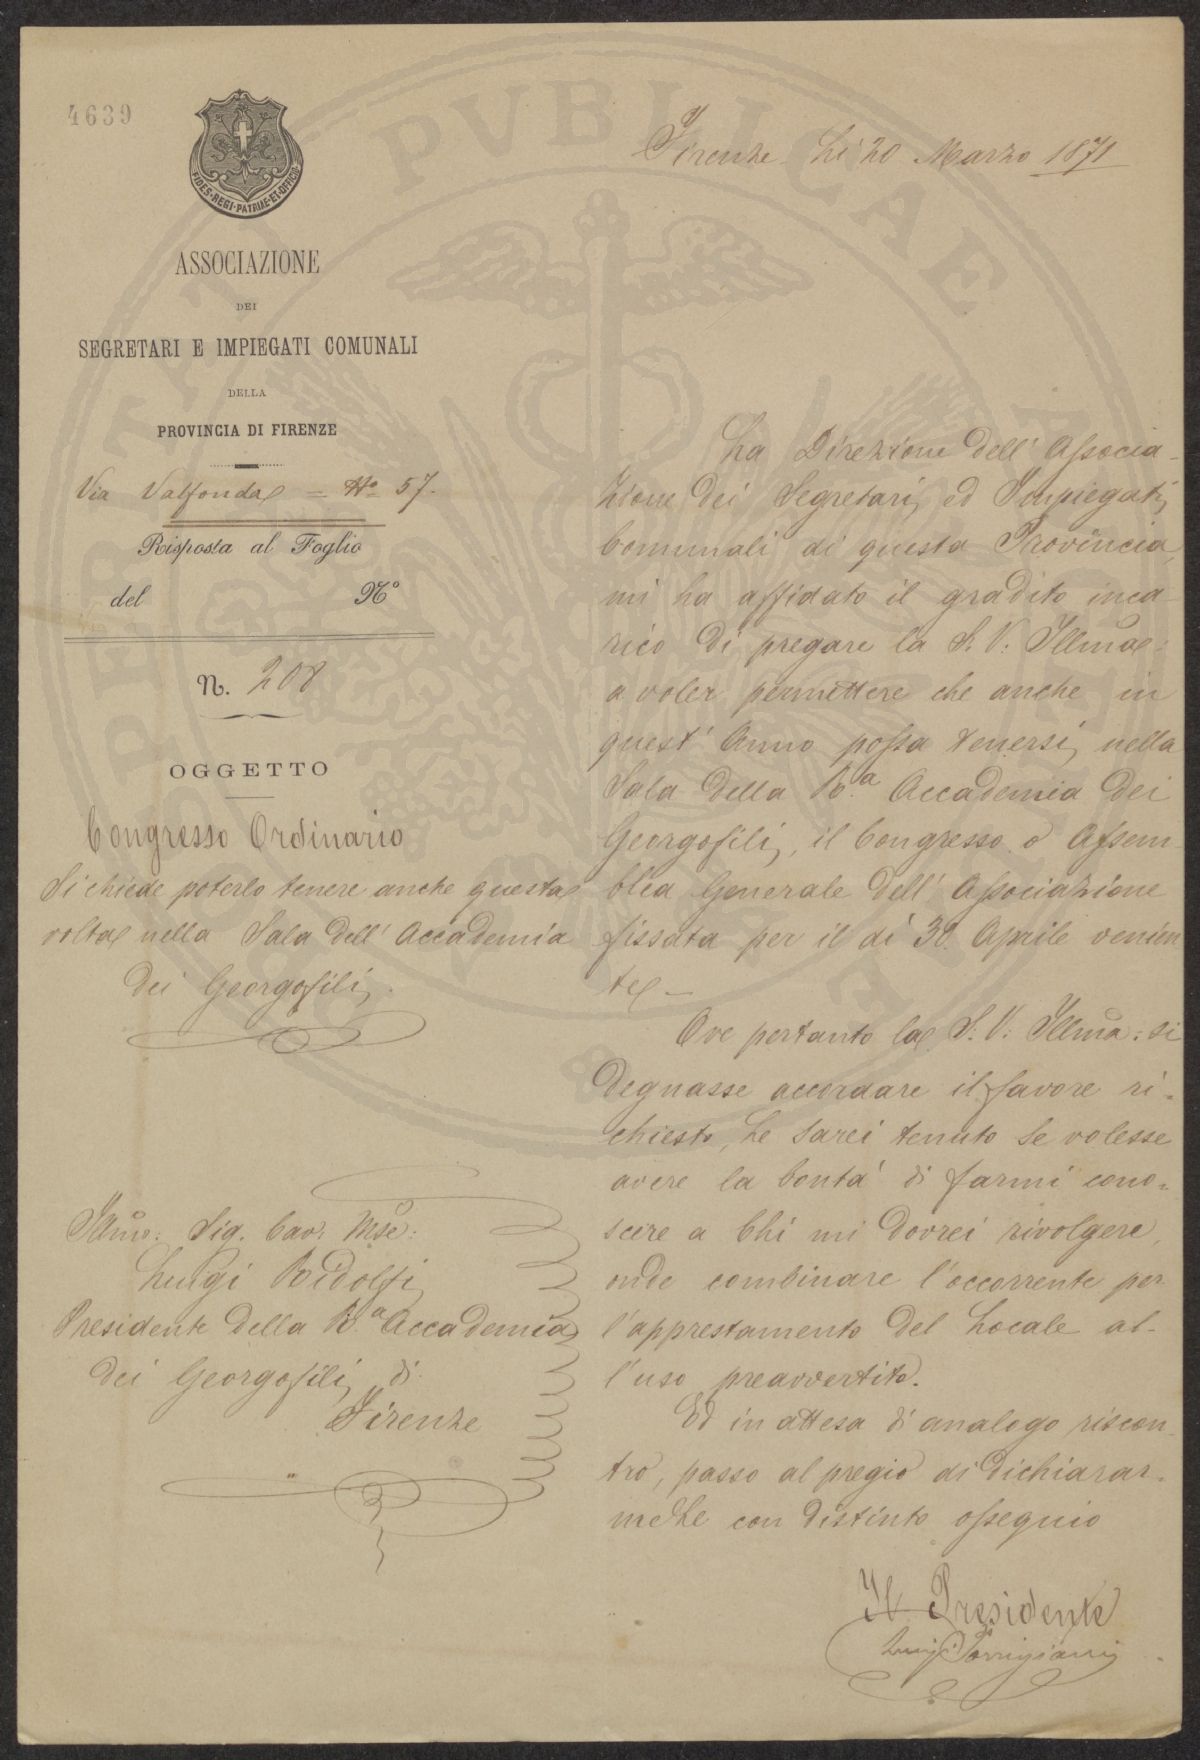 4639
FIDES·REGI·PATRIAE·ET·OFFICIO
ASSOCIAZIONE
DEI
SEGRETARI E IMPIEGATI COMUNALI
DELLA
PROVINCIA DI FIRENZE
Via Valfonda = No 57.
Risposta al Foglio
del No
N. 208
OGGETTO
Congresso Ordinario
Si chiede poterlo tenere anche questa
volta nella Sala dell' Accademia
dei Georgofili.
Illmo: Sig. Cav. Mse:
Luigi Ridolfi
Presidente della R.a Accademia
dei Georgofili di
Firenze
Firenze Li 20 Marzo 1871
La Direzione dell' Associa-
zione dei Segretari ed Impiegati
Comunali di questa Provincia,
mi ha affidato il gradito inca-
rico di pregare la S. V: Illma:
a voler permettere che anche in
quest' Anno possa tenersi nella
Sala della R.a Accademia dei
Georgofili, il Congresso o Assem-
blea Generale dell' Associazione
fissata per il dì 30 Aprile venien
te —
Ove pertanto la S: V: Illma: si
degnasse accordare il favore ri-
chiesto, Le sarei tenuto se volesse
avere la bontà di farmi cono=
scere a Chi mi dovrei rivolgere,
onde combinare l'occorrente per
l'apprestamento del Locale al-
l'uso preavvertito.
Ed in attesa di analogo riscon
tro, passo al pregio di dichiarar-
meLe con distinto ossequio
Il Presidente
Luigi Torrigiani